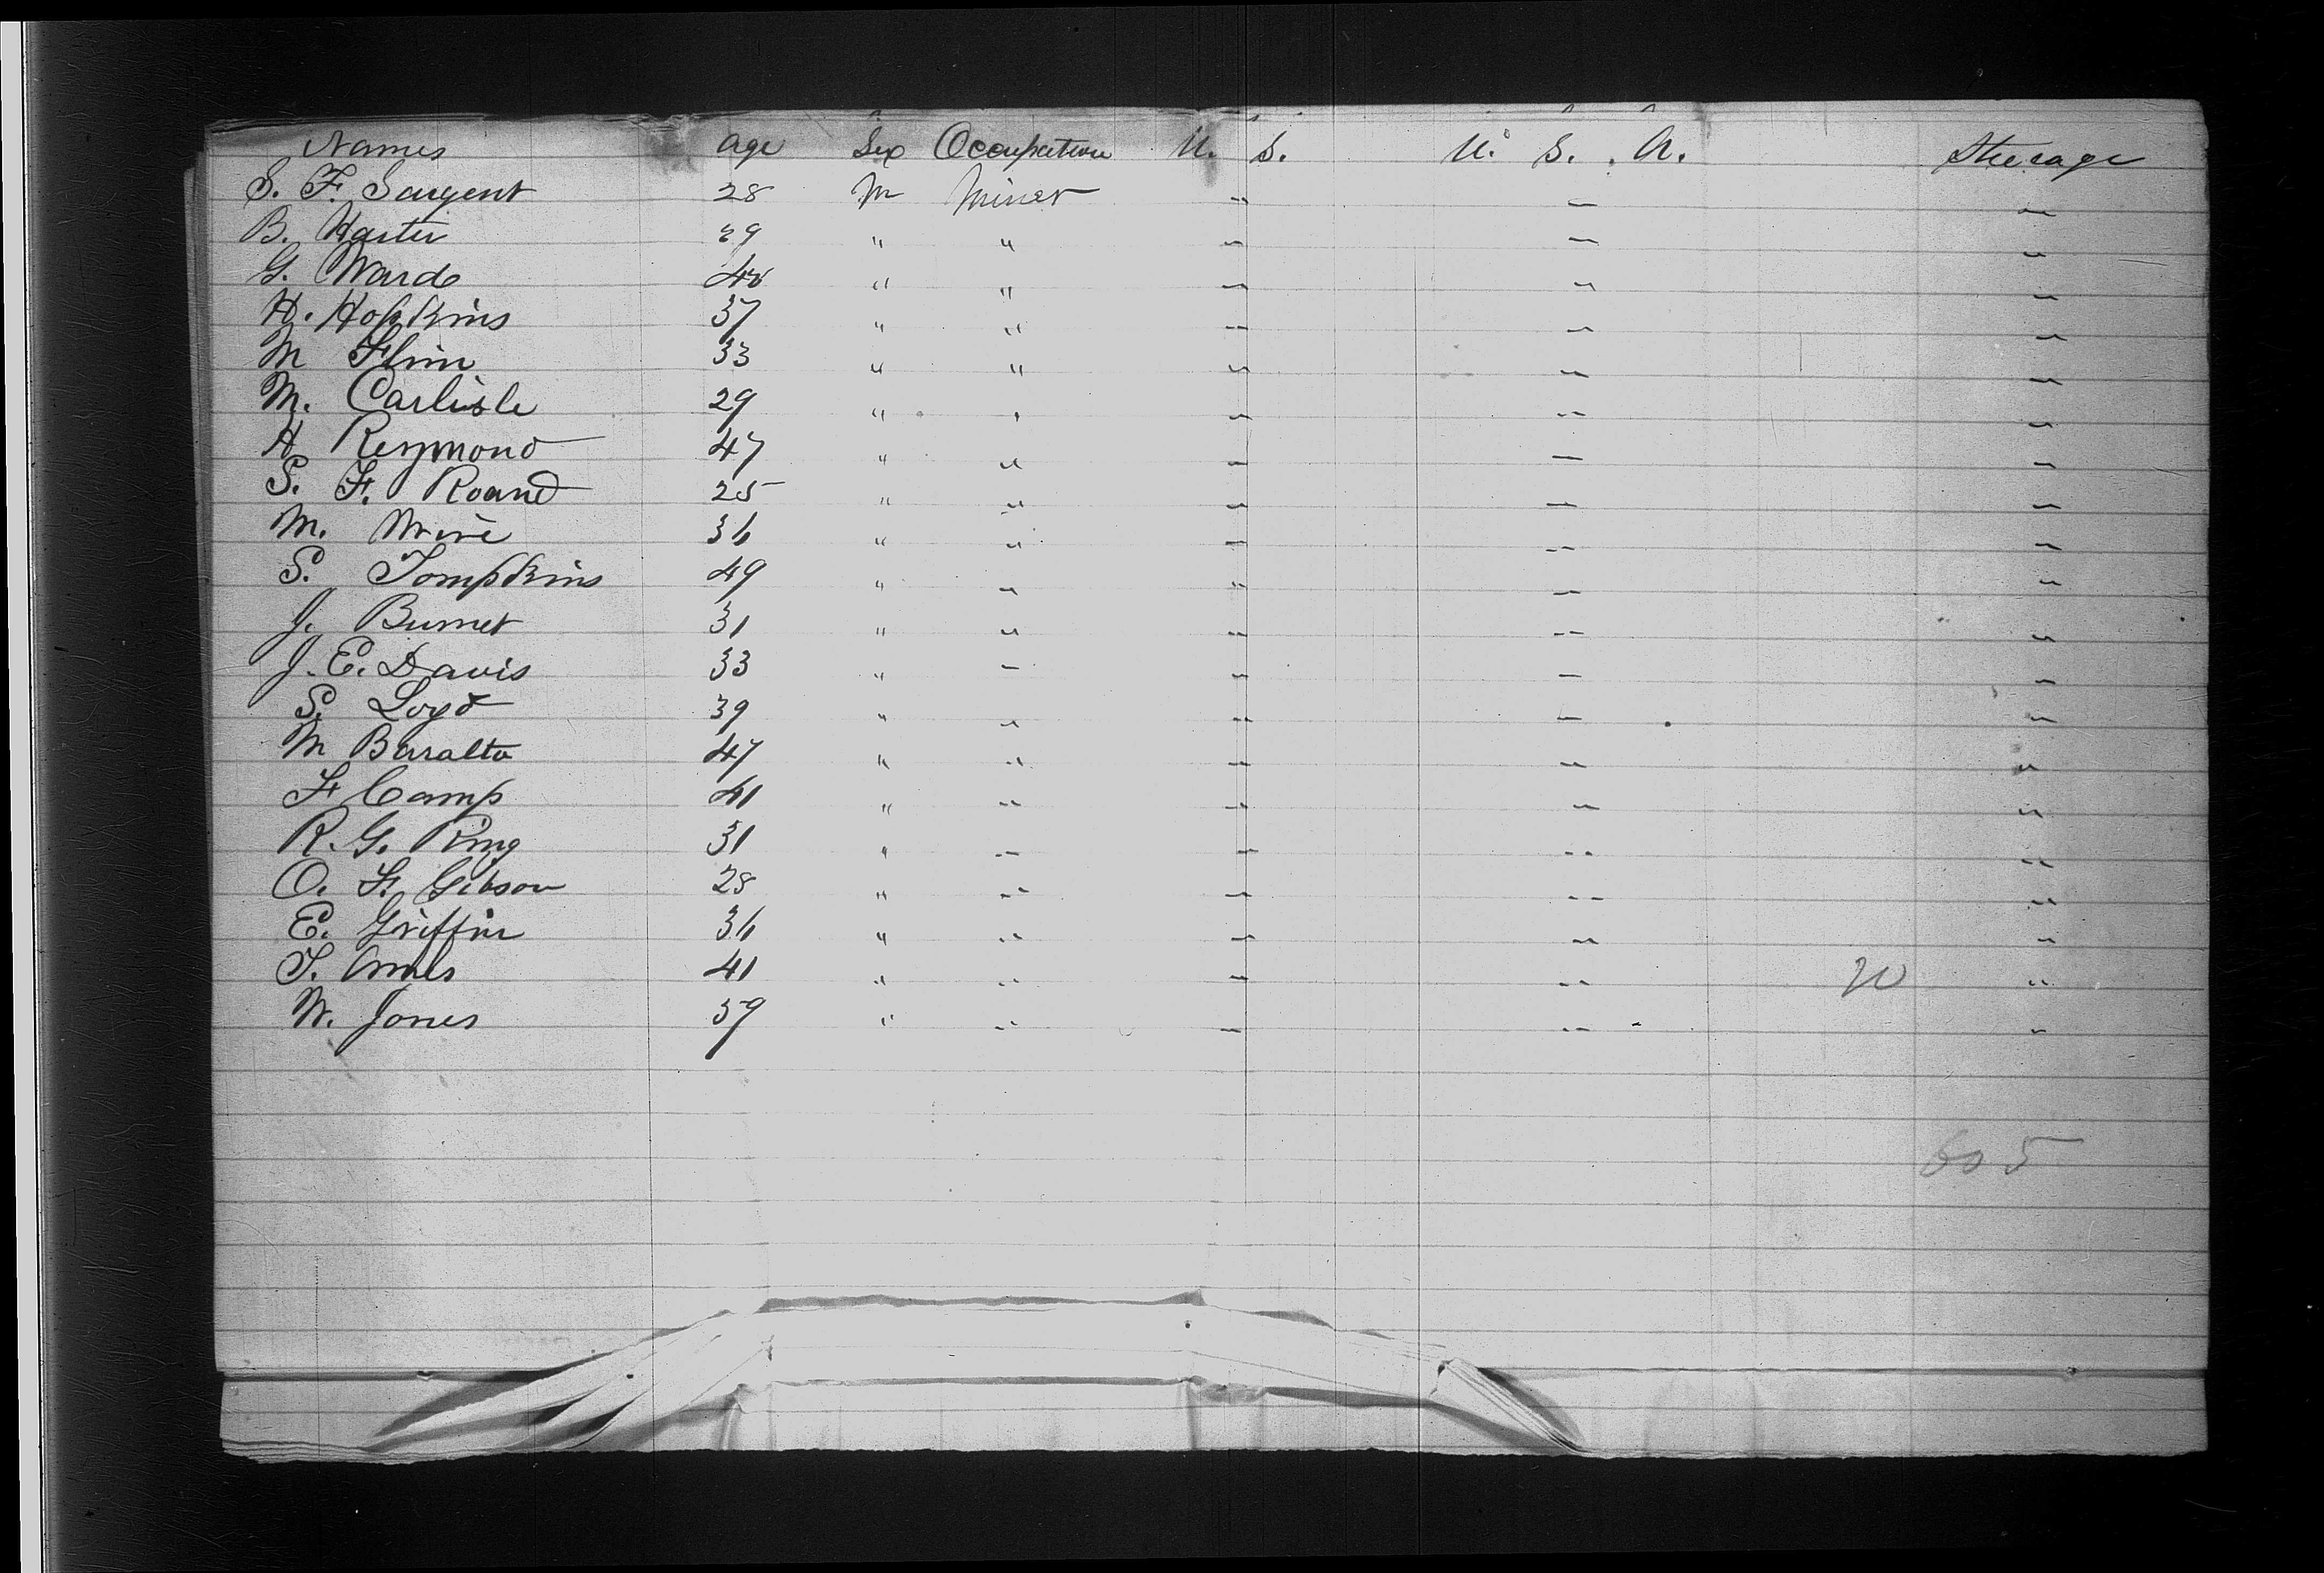 Names age Sex Occupation U. S. U. S. A. Steerage
S. F. Sargent 28 M Miner " " "
B. Harter 29 " " " " "
G. Ward " " " " "
H. Hopkins 37 " " " " "
M Flinn 33 " " " " "
M. Carlisle 29 " " " " "
H Reymond 47 " " " " "
S. F. Roand 25 " " " " "
M. 36 " " " " "
S. Tompkins 49 " " " " "
J. Burnet 31 " " " " "
J. E. Davis 33 " " " " "
S. Loyd 39 " " " " "
M Baralto 47 " " " " "
F Camp 41 " " " " "
R. G. King 31 " " " " "
O. F. Gibson 28 " " " " "
E. Griffin 36 " " " " "
T. Ames 41 " " " " 20 "
W. Jones 39 " " " " "
605